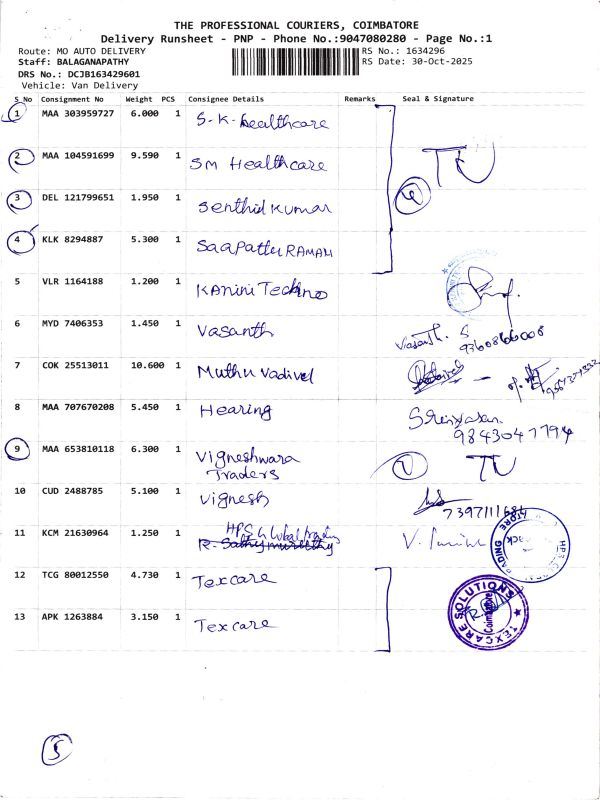 THE PROFESSIONAL COURIERS, COIMBATORE
Delivery Runsheet - PNP - Phone No.:9047080280 - Page No.:1
Route: MO AUTO DELIVERY RS No.: 1634296
Staff: BALAGANAPATHY RS Date: 30-Oct-2025
DRS No.: DCJB163429601
Vehicle: Van Delivery
S No Consignment No Weight PCS Consignee Details Remarks Seal & Signature
1 MAA 303959727 6.000 1 S.K. Healthcare
2 MAA 104591699 9.590 1 SM Healthcare
3 DEL 121799651 1.950 1 Senthil Kumar
4 KLK 8294887 5.300 1
5 VLR 1164188 1.200 1 Kanini Techno
6 MYD 7406353 1.450 1 Vasanth Vasanth. S
9360866008
7 COK 25513011 10.600 1 Muthu Vadivel
8 MAA 707670208 5.450 1 Hearing Srinivasan
9843047794
9 MAA 653810118 6.300 1 Vigneshwara
Traders
10 CUD 2488785 5.100 1 Vignesh
11 KCM 21630964 1.250 1 HPS Global Trading
12 TCG 80012550 4.730 1 Texcare
TEXCARE SOLUTIONS
Coimbatore
13 APK 1263884 3.150 1 Texcare
5